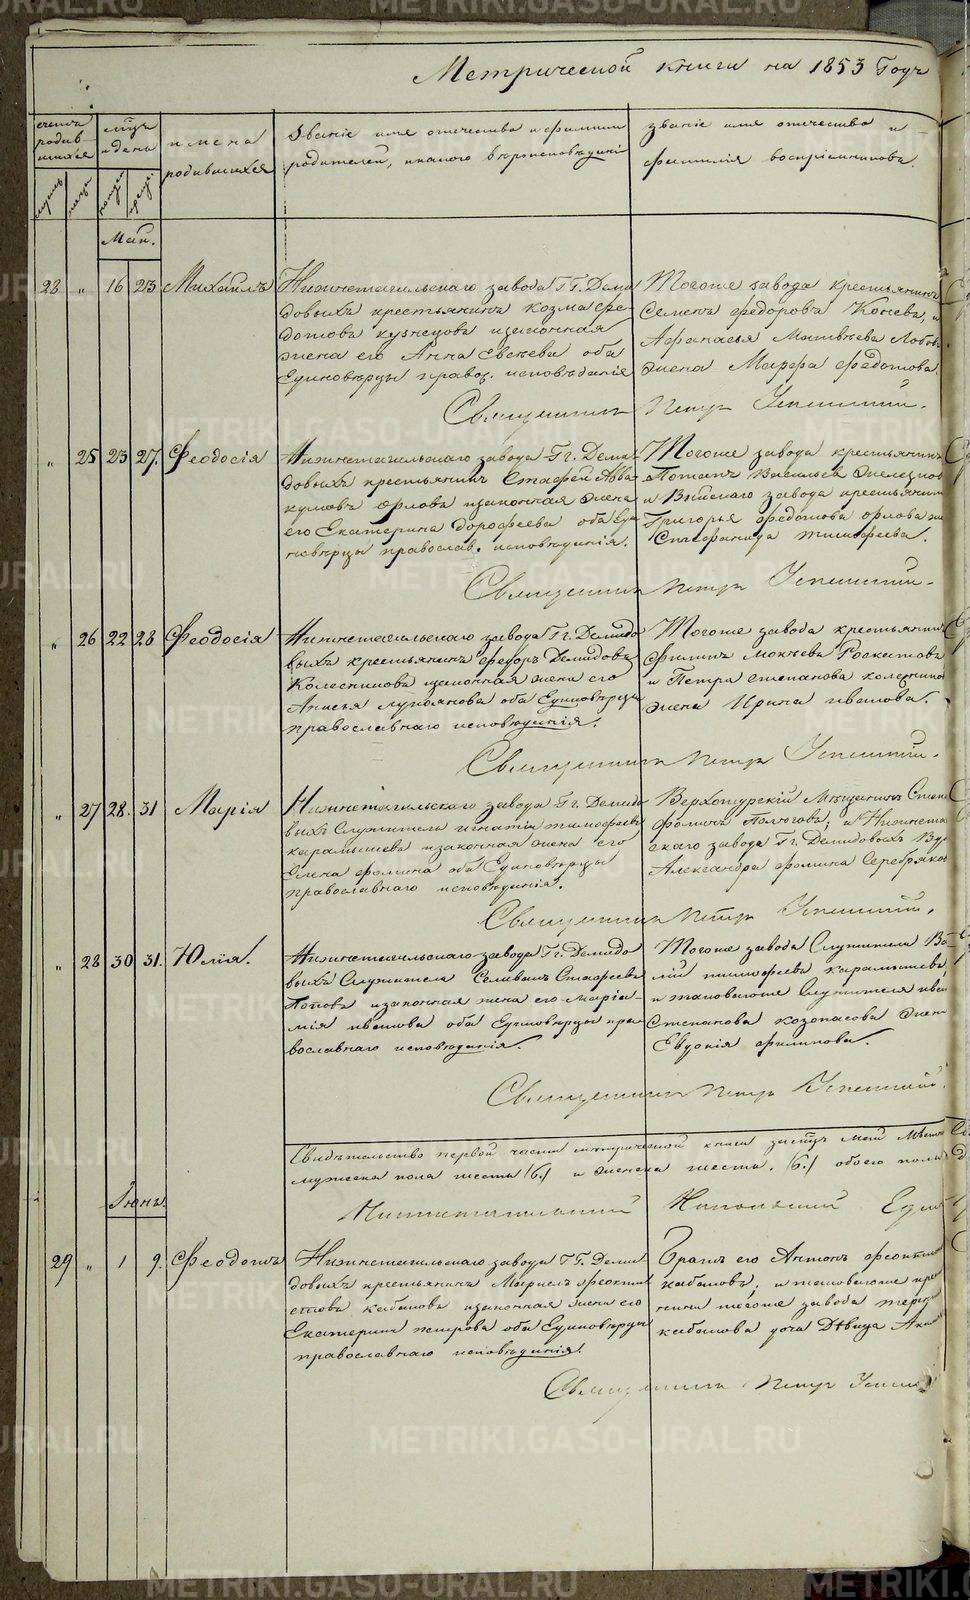 Метрической книги на 1853 Годъ
счетъ родив шихся
мѣцъ и день
имена родившихся
Званіе имя отечество и фамилія
родителей, и какого вѣроисповѣданія
званіе имя отечество и
фамилія воспріемниковъ.
Май.
28 " 16 23 Михаилъ
Нижнетагильскаго завода Гг. Деми
довыхъ крестьянинъ Козма Ѳе
дотовъ Кузнецовъ и законная
жена его Анна Евсѣева оба
Единовѣрцы правос. исповѣданія
Тогоже завода крестьянинъ
Семенъ Ѳедоровъ Коневъ, и
Афанасья Матвѣева Лобов
жена Марфа Ѳедотова
Священникъ Петръ Успенскій.
" 25 23 27. Ѳеодосія
Нижнетагильскаго завода Гг. Деми
довыхъ крестьянинъ Стафей Авва
кумовъ Орловъ и законная жена
его Екатерина Дорофеева оба Еди
новѣрцы православ. исповѣданія.
Тогоже завода крестьянинъ
Потапъ Васильевъ
и Выйскаго завода крестьянина
Григорья Федотова Орлова же
Стефанида Тимофеева.
Священникъ Петръ Успенскій.
" 26 22 28 Ѳеодосія
Нижнетагильскаго завода Гг. Демидо
выхъ крестьянинъ Федоръ Демидовъ
Колесниковъ и законная жена его
Анисья Лукоянова оба Единовѣрцы
православнаго исповѣданія.
Тогоже завода крестьянинъ
Филипъ Мокѣевъ
и Петра Степанова Колесников
жена Ирина Иванова.
Священникъ Петръ Успенскій.
" 27 28. 31 Марія
Нижнетагильскаго завода Гг. Демидо
выхъ Служитель Игнатій Тимофеевъ
Карамышевъ и законная жена его
Елена Фомина оба Единовѣрцы
православнаго исповѣданія.
Верхотурскій Мѣщанинъ
и Нижнета
скаго завода Гг. Демидовыхъ
Александра Фомина Серебряков
Священникъ Петръ Успенскій.
" 28 30 31. Юлія.
Нижнетагильскаго завода Гг. Демидо
выхъ Служитель Селиванъ Стафеевъ
Поповъ и законная жена его Маріа-
мія Иванова оба Единовѣрцы пра
вославнаго исповѣданія.
Тогоже завода Служитель Ва
лій Тимофеевъ Карамышевъ,
и таковагоже Служителя Иван
Степанова Козопасова жена
Евдокія Филипова.
Священникъ Петръ Успенскій.
Свидѣтельство первой части метрической книги за мѣцъ Май Мѣсяцъ
мужеска пола шесть (6.) и женска шесть. (6.) обоего пола
Нижнетагильской Никольской Един
Іюнь.
29 " 1 9. Ѳеодотъ
Нижнетагильскаго завода Гг. Деми
довыхъ крестьянинъ
Кабановъ и законная жена его
Екатерина Петрова оба Единовѣрцы
православнаго исповѣданія.
Братъ его Антонъ
Кабановъ, и таковагоже кре
тогоже завода
Кабанова дочь Дѣвица
Священникъ Петръ Успен
METRIKI.GASO-URAL.RU